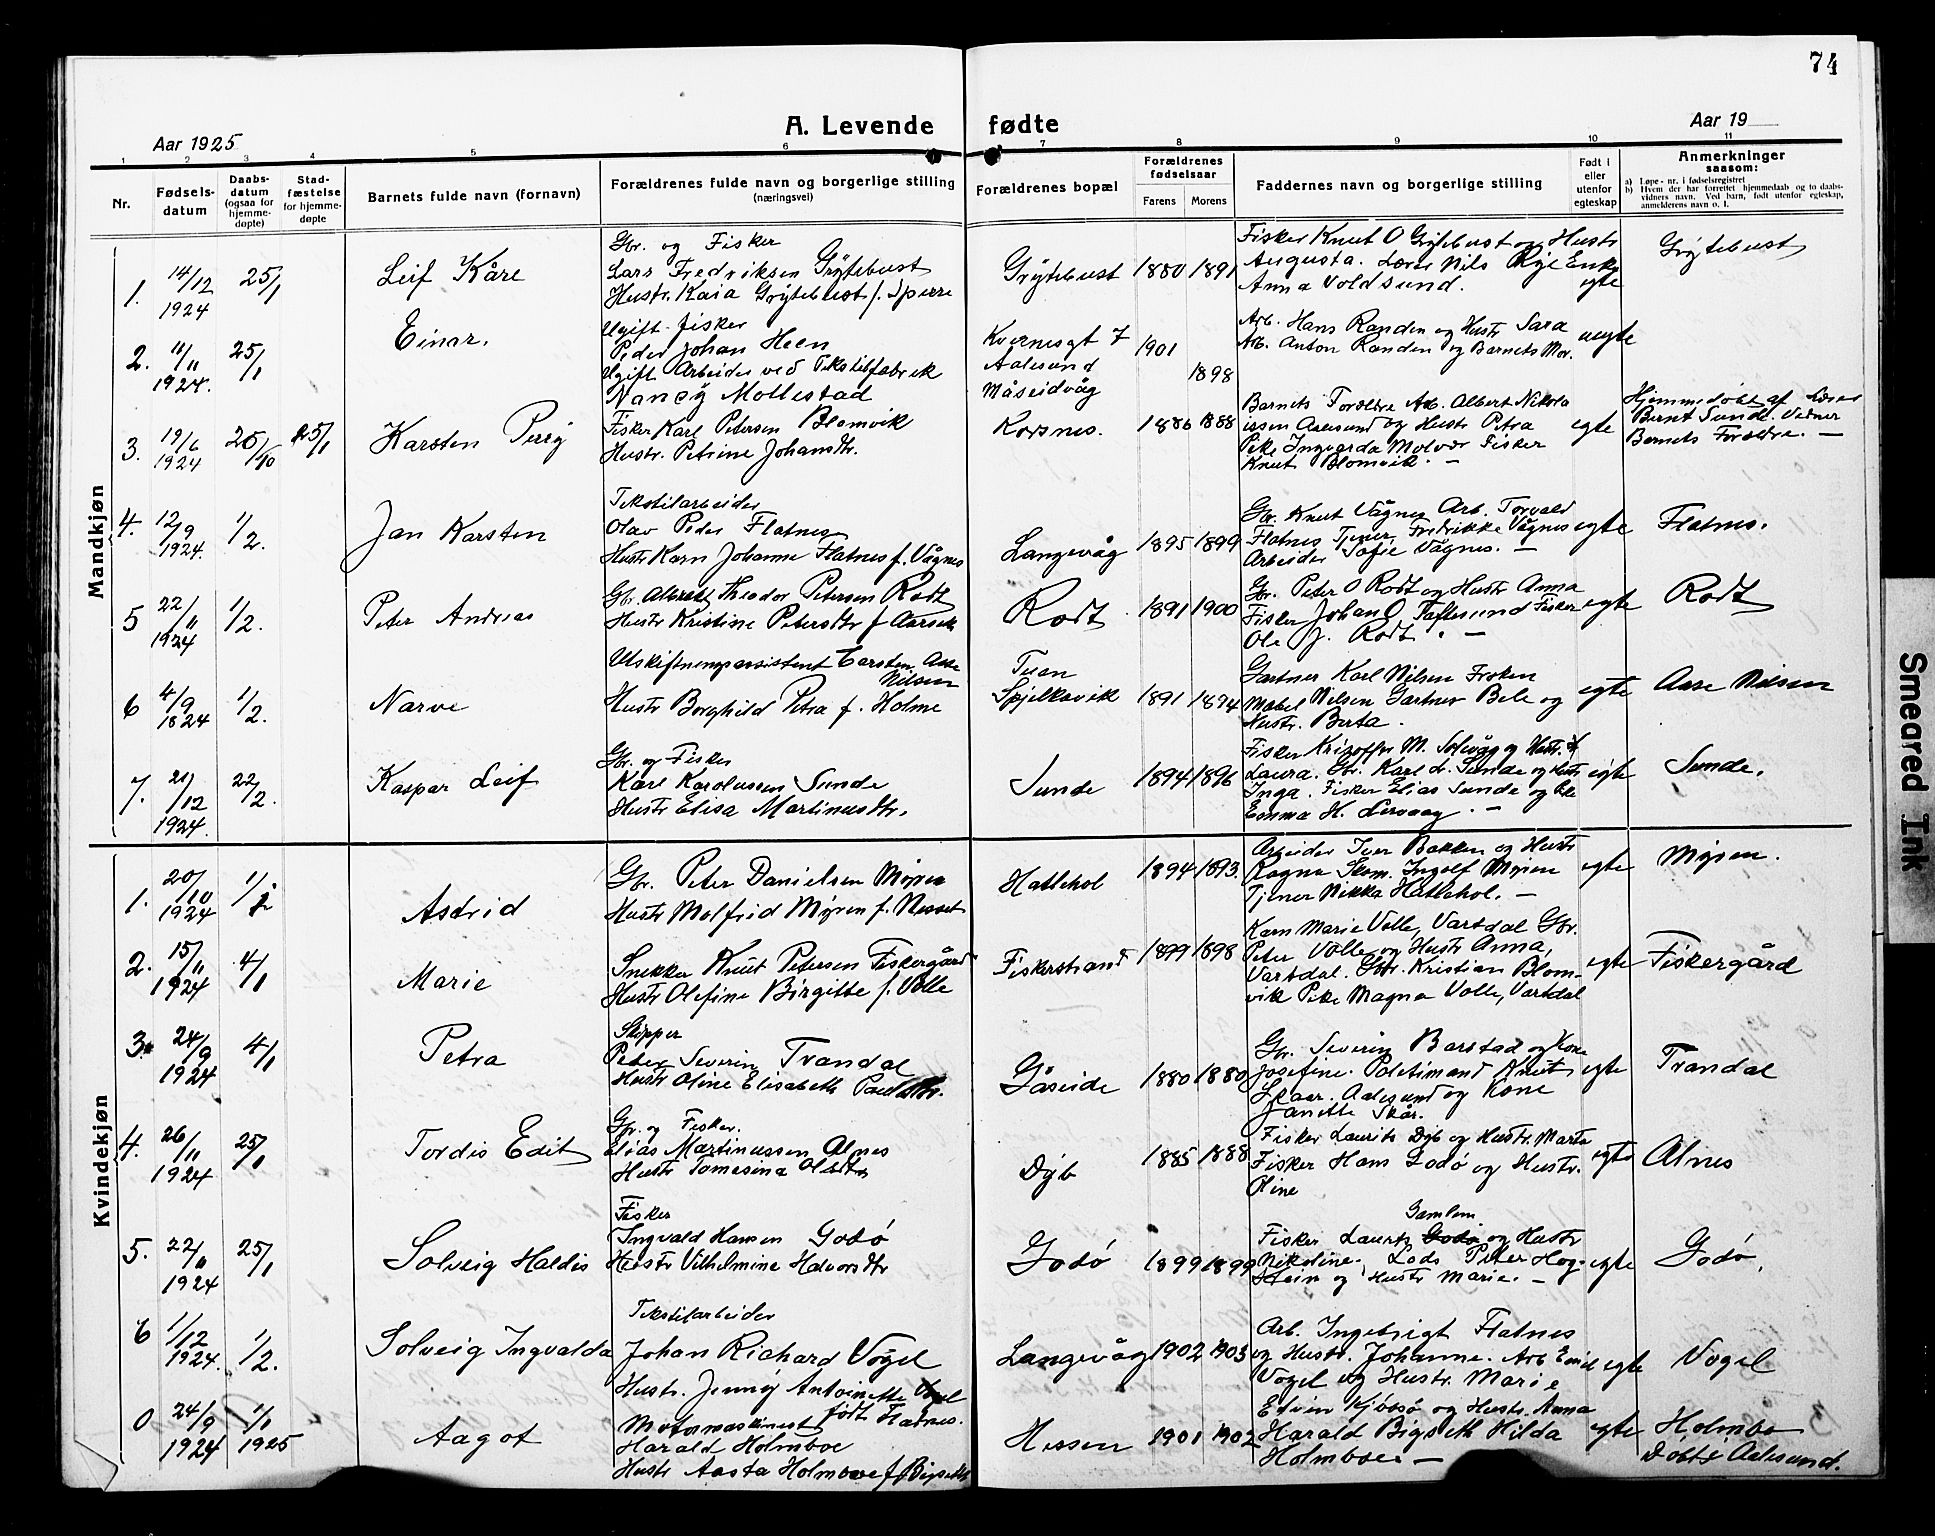 74
A. Levende fødte
Aar 1925
Aar 19
1 2 3 4 5 6 7 8 9 10 11
Nr.
Fødsels-
datum
Daabs-
datum
(ogsaa for
hjemme-
døpte)
Stad-
fæstelse
for hjemme-
døpte
Barnets fulde navn (fornavn)
Forældrenes fulde navn og borgerlige stilling
(næringsvei)
Forældrenes bopæl
Forældrenes
fødselsaar
Farens Morens
Faddernes navn og borgerlige stilling
Født i
eller
utenfor
egteskap
Anmerkninger
saasom:
a) Løpe-nr. i fødselsregistret
b) Hvem der har forrettet hjemmedaab og to daabs-
vidners navn. Ved barn, født utenfor egteskap,
anmelderens navn o. l.
Mandkjøn
1. 14/12 1924 25/1
Leif Kåre
Gbr. og Fisker
Lars Fredriksen Grytebust
Hustr. Kaia Grytebust f. Sperre
Grytebust 1880 1891
Fisker Knut O Grytebust og Hustr
Augusta. Lærer Nils Enke
Anna Voldsund.
egte
Grytebust
2. 11/11 1924. 25/1
Einar.
Ugift fisker
Peder Johan Heen
Ugift Arbeider ved Tekstilfabrik
Nancy Mollestad
Kvernesgt 7
Aalesund
Måseidvåg
1901
1898
Arb. Hans Randen og Hustr Sara
Arb. Anton Randen og Barnets Mor.
uegte
3. 19/6 1924 26/10 25/1
Karsten Perry
Fisker Karl Petersen Blomvik
Hustr. Petrine Johansdtr.
Korsnes. 1886 1888
Barnets Forældre Arb. Albert Nikola
issen Aalesund og Hustr Petra
Pike Ingvarda Molvær Fisker
Knut Blomvik. —
egte
Hjemmedøbt af Lærer
Bernt Sunde. Vidner
Barnets Forældre. —
4. 12/9 1924. 1/2.
Jan Karsten
Tekstilarbeider
Olav Peder Flatnes
Hustr Karn Johanne Flatnes f. Vågnes
Langevåg 1895 1899
Gbr. Knut Vågnes Arb. Torvald
Flatnes Tjener Fredrikke Vågnes
Arbeider Sofie Vågnes. —
egte
Flatnes.
5 22/11 1924 1/2.
Peter Andreas
Gbr. Albrekt Theodor Petersen Rødt
Hustr Kristine Petersdtr f Aarseth
Rødt 1891 1900
Gbr. Peter O Rødt og Hustr Anna
Fisker Johan O Taftesund Fisker
Ole J. Rødt. —
egte
Rødt
6 4/9 1824 1/2.
Narve
Utskiftningsassistent Carsten Aase
Nilsen
Hustr Borghild Petra f. Holme
Tuen
Spjelkavik 1891 1894
Gartner Karl Nilsen Frøken
Mabel Nilsen Gartner Bele og
Hustr. Berta.
egte
Aase Nilsen
7. 21/12 1924. 22/2.
Kaspar Leif
Gbr. og Fisker
Karl Karolussen Sunde
Hustr Elisa Martinusdtr.
Sunde 1894 1896
Fisker Kristoffer M. Solevåg og Hustr.
Laura. Gbr. Karl L. Sunde og Hustr
Inga. Fisker Elias Sunde og
Emma H. Lervaag. —
egte
Sunde.
Kvindekjøn
1. 20/10 1924 1/2
Astrid
Gbr. Peter Danielsen Myren
Hustr Malfrid Myren f. Nesset
Hatlehol 1894 1893.
Arbeider Iver Bakken og Hustr
Ragna Skom. Ingolf Myren
Tjener Nikka Hatlehol. —
egte
Myren.
2. 15/11 1924 4/1
Marie
Snekker Knut Petersen Fiskergård
Hustr Olefine Birgitte f. Volle
Fiskerstrand 1899 1898
Karn Marie Volle, Vartdal Gbr.
Peter Volle og Hustr Anna,
Vartdal. Gbr. Kristian Blom-
vik Pike Magna Volle, Vartdal
egte
Fiskergård
3. 24/9 1924 4/1
Petra
Skipper
Peter Severin Trandal
Hustr Oline Elisabeth Paulsdtr.
Gåseide 1880 1880
Gbr. Severin Barstad og Kone
Josefine. Politimand Knut
Skaar. Aalesund og Kone
Janette Skår.
egte
Trandal
4. 26/11 1924 25/1
Tordis Edit
Gbr. og Fisker.
Elias Martinussen Alnes
Hustr Tomasina Olsdtr
Dyb 1885 1888
Fisker Laurits Dyb og Hustr. Marta
Fisker Hans Godø og Hustr.
Oline
egte
Alnes
5. 22/11 1924 25/1
Solveig Haldis
Fisker
Ingvald Hansen Godø
Hustr Vilhelmine Halvorsdtr
Godø 1899 1899
Gamlem
Fisker Laurits Godø og Hustr
Nikoline. Lods Peter Hog-
stein og Hustr Marie. —
egte
Godø,
6 1/12 1924. 1/2.
Solveig Ingvalda
Tekstilarbeider
Johan Richard Vogel
Hustr. Jenny Antoinette Vogel
født Flatnes.
Langevåg 1902 1903
Arb. Ingebrigt Flatnes
og Hustr. Johanne. Arb Emil
Vogel og Hustr. Marie
egte
Vogel
0 24/9 1924 1/1 1925
Aagot
Motormaskinest
Harald Holmboe
Hustr Aasta Holmboe f. Bigseth
Hessen 1901 1902
Edvin og Hustr. Anna
Harald Bigseth Hilda
Holmboe —
egte
Holmbo
Døbt i Aalesund.
Smeared Ink